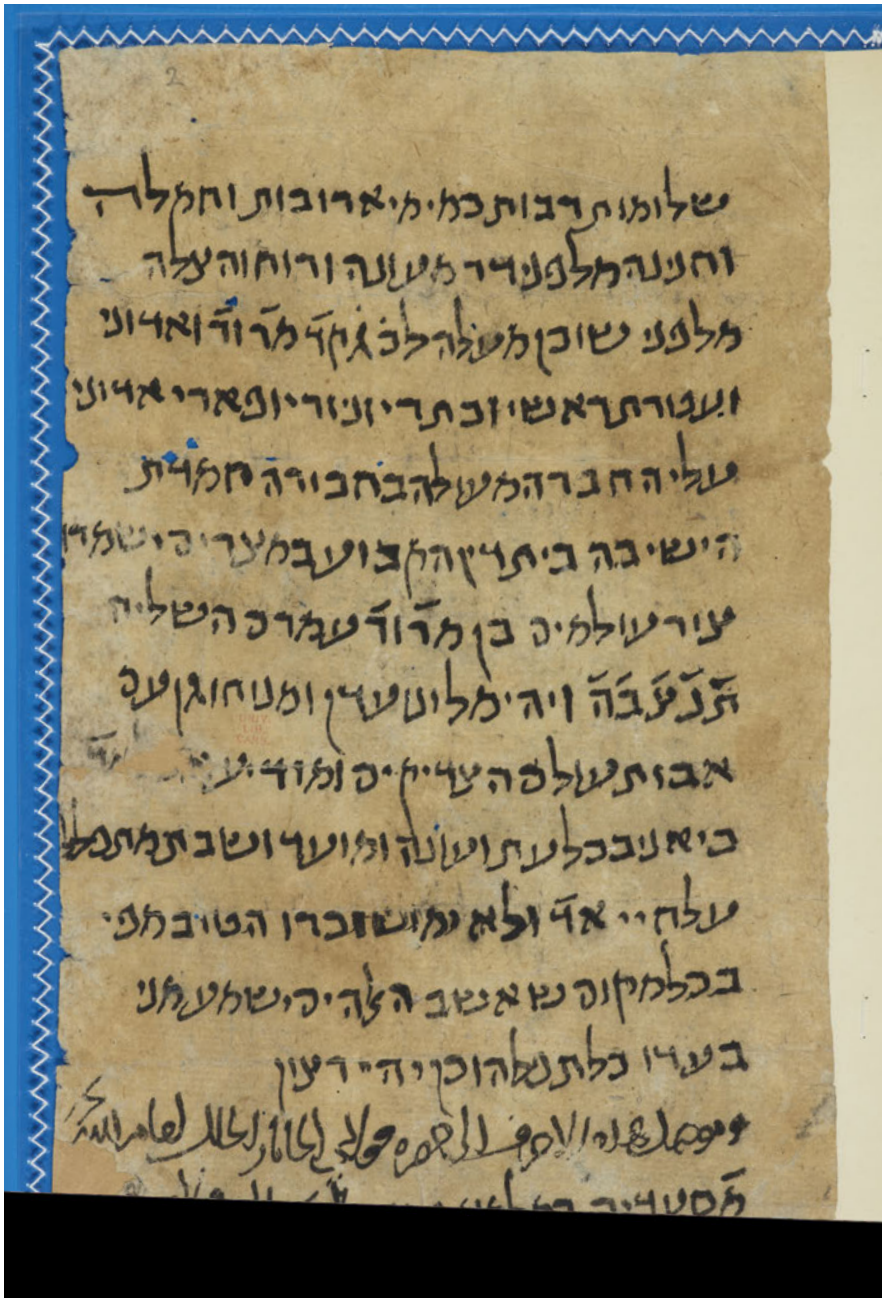 שלומות רבות כמימי ארובות וחמלה
וחנינה מלפני דר מעונה ורוח והצלה
מלפני שוכן מעלה לכ̇ ג̇ק̇ ד̇ מ̇ר̇ ור̇ ואדוני
ועטרת ראשי וכתרי ונזרי ופארי אדוני
עלי החבר המעולה בחבורה חמדת
הישיבה ביתדין הקבוע במצרים ישמרו
צור עולמים בן מ̇ר̇ ור̇ עמרם השליח
ת̇נ̇צ̇ב̇ה̇ ויהי מלינו עדן ומנוחו גן עם
אבות עולם הצדיקים ומודיע
כי אני בכל עת ועונה ומועד ושבת מתפלל
על חיי אד̇ ולא ימוש זכרו הטוב מפי
בכל מקום שאשב האלהים ישמע מני
בעדו כל תפלה וכן יהי רצון